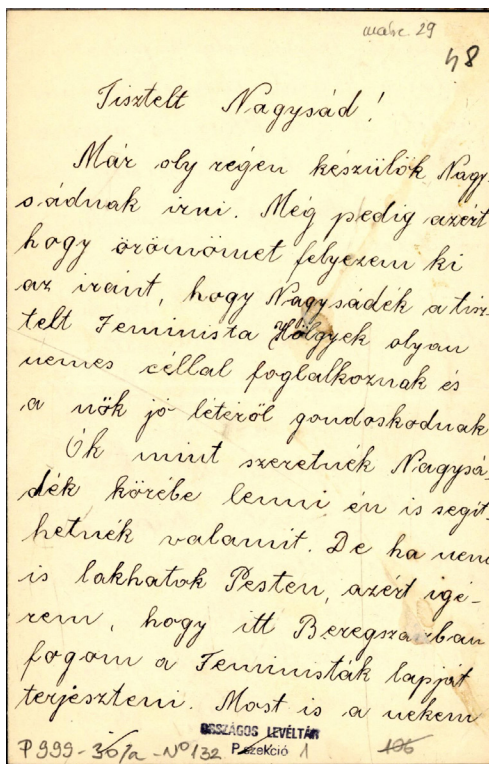 márc. 29
48
Tisztelt Nagysád!
Már oly régen készülök Nagy-
sádnak irni. Még pedig azért
hogy örömömet felyezem ki
az iránt, hogy Nagysádék a tisz
telt Feminista Hölgyek olyan
nemes céllal foglalkoznak és
a nök jó létéröl gondoskodnak
Ók mint szeretnék Nagysá-
dék körébe lenni én is segit-
hetnék valamit. De ha nem
is lakhatok Pesten, azért igé-
rem, hogy itt Beregszazban
fogom a Feministák lapját
terjeszteni. Most is a nekem
ORSZÁGOS LEVÉLTÁR
P szekció 1
P999-36/a-Nº132
106